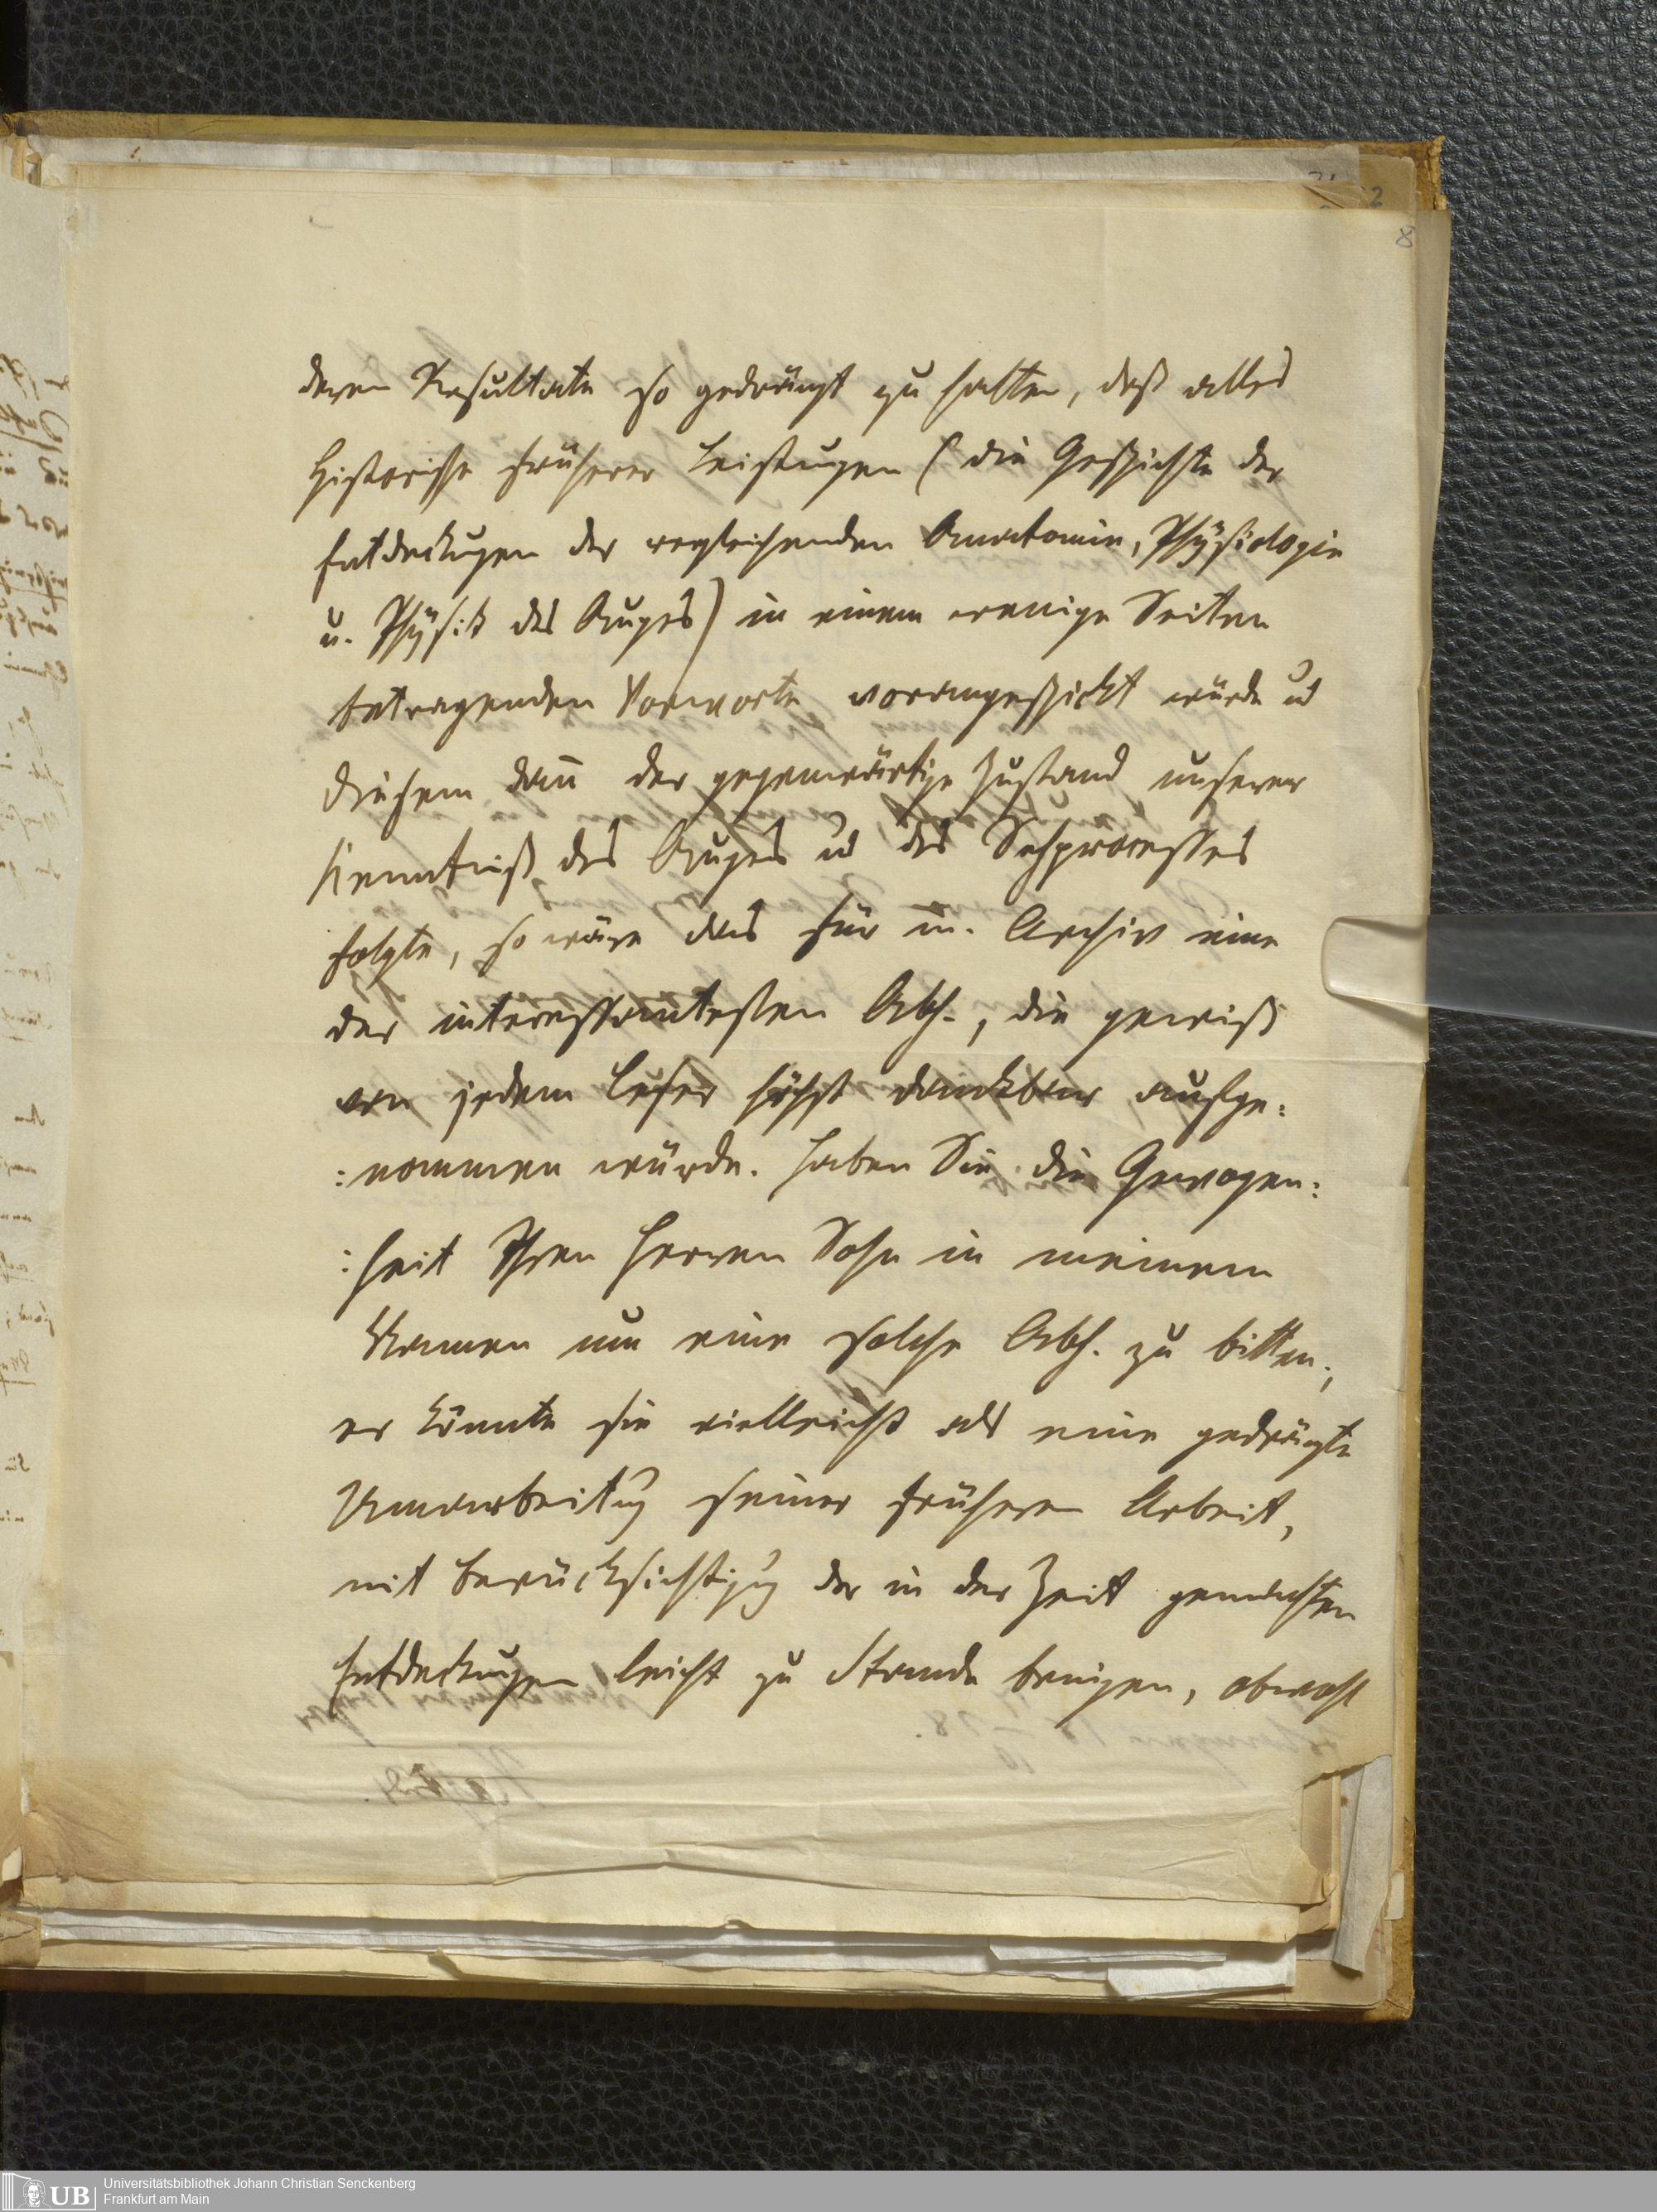 8
deren Resultate so gedrängt zu halten, daß alles
Historische früherer Leistungen (die Geschichte der
Entdeckungen der vergleichenden Anatomie, Physiologie
u. Physik des Auges) in einem wenige Seiten
betragenden Vorworte vorangeschickt würde ud
diesem dan̅ der gegenwärtige Zustand unserer
Kenntniß des Auges ud des Sehprocesses
folgte, so wäre das für m. Archiv eine
der interessantesten Abh., die gewiß
von jedem Leser höchst dankbar aufge:
:nommen würde. Haben Sie die Gewogen:
:heit Ihren Herren Sohn in meinem
Namen um eine solche Abh. zu bitten;
er könnte sie vielleicht als eine gedrängte
Umarbeitug seiner früheren Arbeit,
mit Berücksichtigug der in der Zeit gemachten
Entdeckungen leicht zu Stande bringen, obwohl
UB Universitätsbibliothek Johann Christian Senckenberg
Frankfurt am Main